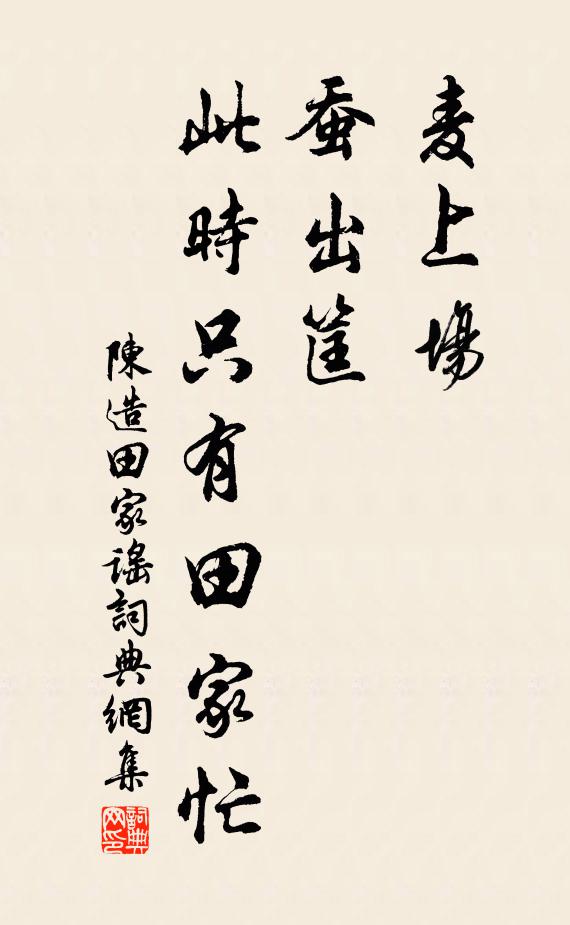 麦上場
蚕出筐
此時只有田家忙
陳造田家謡詞典網集
詞典网印